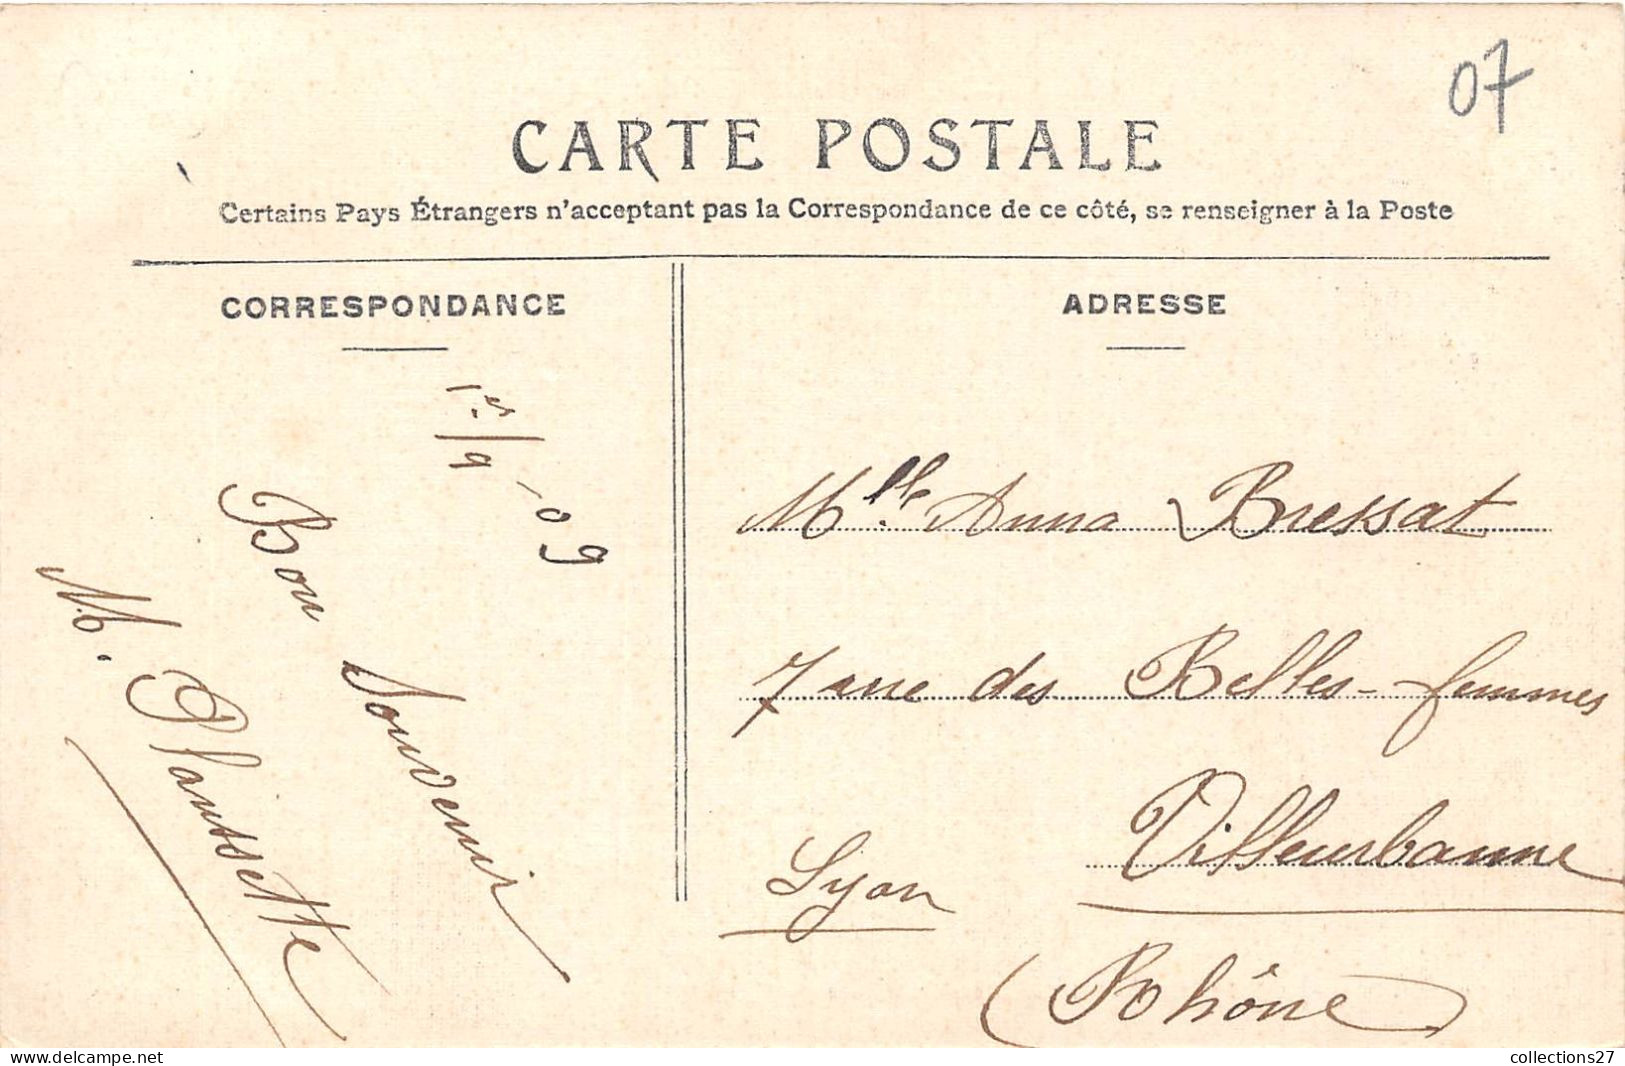 07
CARTE POSTALE
Certains Pays Étrangers n'acceptant pas la Correspondance de ce côté, se renseigner à la Poste
CORRESPONDANCE
1er/9-09
Bon Souvenir
M. Plaussette
ADRESSE
Mlle Anna Bressat
7 rue des Belles-femmes
Villeurbanne
Lyon
(Rhône)
collections27